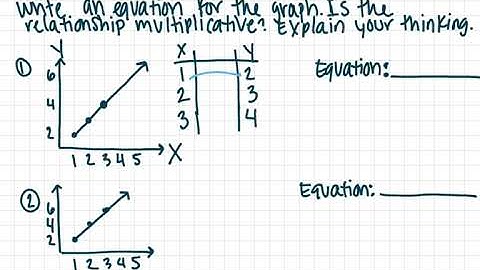 write an equation for the graph. Is the
relationship multiplicative? Explain your thinking.
① Y X Y Equation:
6 1 2
4 2 3
2 3 4
1 2 3 4 5 X
② Equation:
6
4
2
1 2 3 4 5